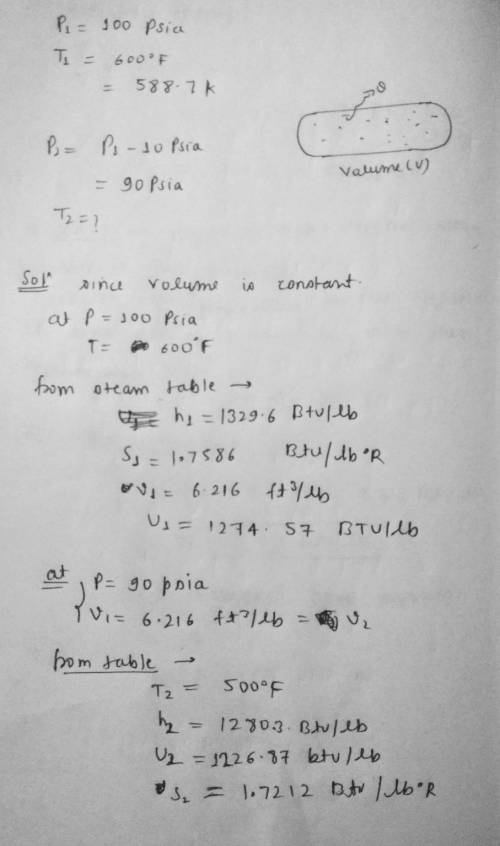 P1 = 100 Psia
T1 = 600°F
= 588.7 k
P2 = P1 - 10 Psia
= 90 Psia
T2 = ?
Q
Valume (V)
Solⁿ since volume is constant.
at P = 100 Psia
T = 600°F
from steam table →
h1 = 1329.6 Btu/lb
S1 = 1.7586 Btu/lb°R
v1 = 6.216 ft3/lb
U1 = 1274.57 BTU/lb
at P = 90 psia
v1 = 6.216 ft3/lb = v2
from table →
T2 = 500°F
h2 = 1280.3 Btu/lb
U2 = 1226.87 btu/lb
s2 = 1.7212 Btu/lb°R